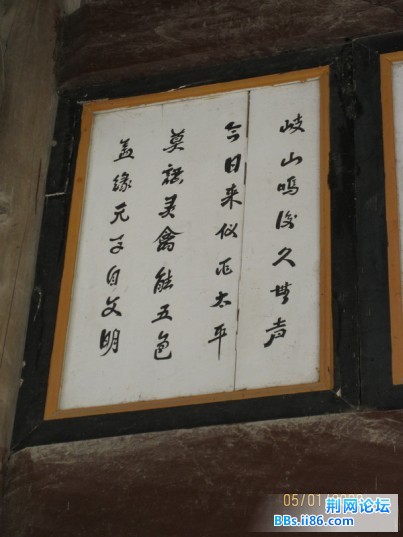 岐山鸣後久無声
今日来仪正太平
莫誇灵禽能五色
盖缘天子自文明
05/01/
荆网论坛
BBs.ii86.com